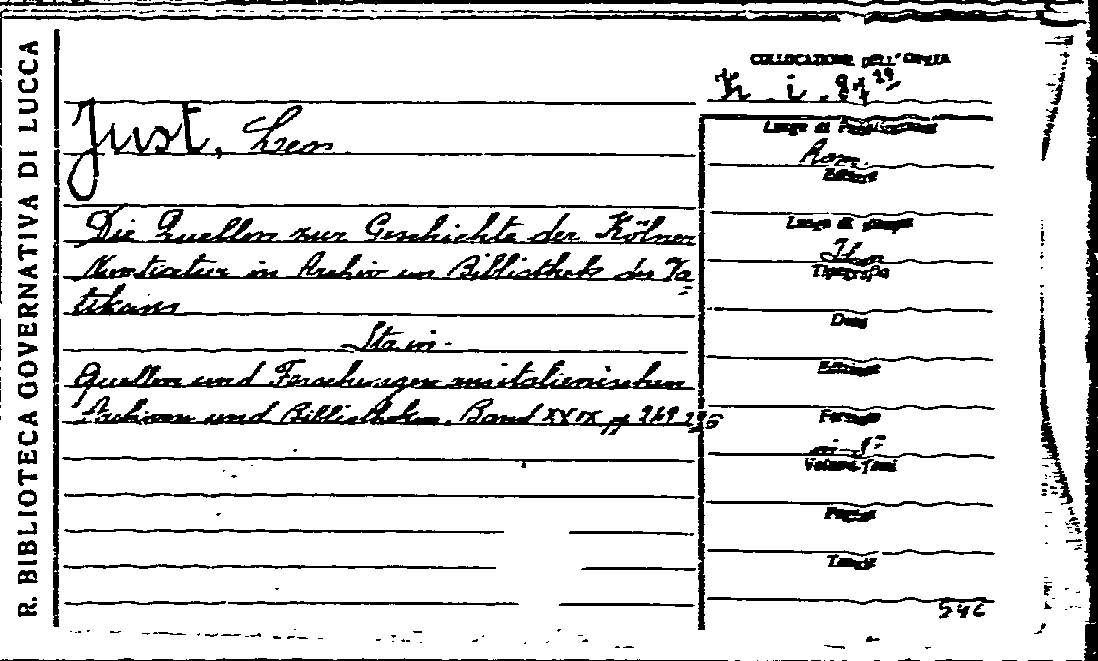 R. BIBLIOTECA GOVERNATIVA DI LUCCA
COLLOCAZIONE DELL'OPERA
Just, Leon
Luogo di Pubblicazione
Rom.
Editore
Die Quellen zur Geschichte der Kölner
Nuntiatur in Archiv un Bibliothek des Va=
tikans
Luogo di stampa
Tipografia
Data
Sta in.
Edizione
Quellen und Forschungen aus italienischen
Archiven und Bibliotheken. Band XXIX pp 249-296
Formato
in-8°
Volumi-Tomi
Pagine
Tavole
542